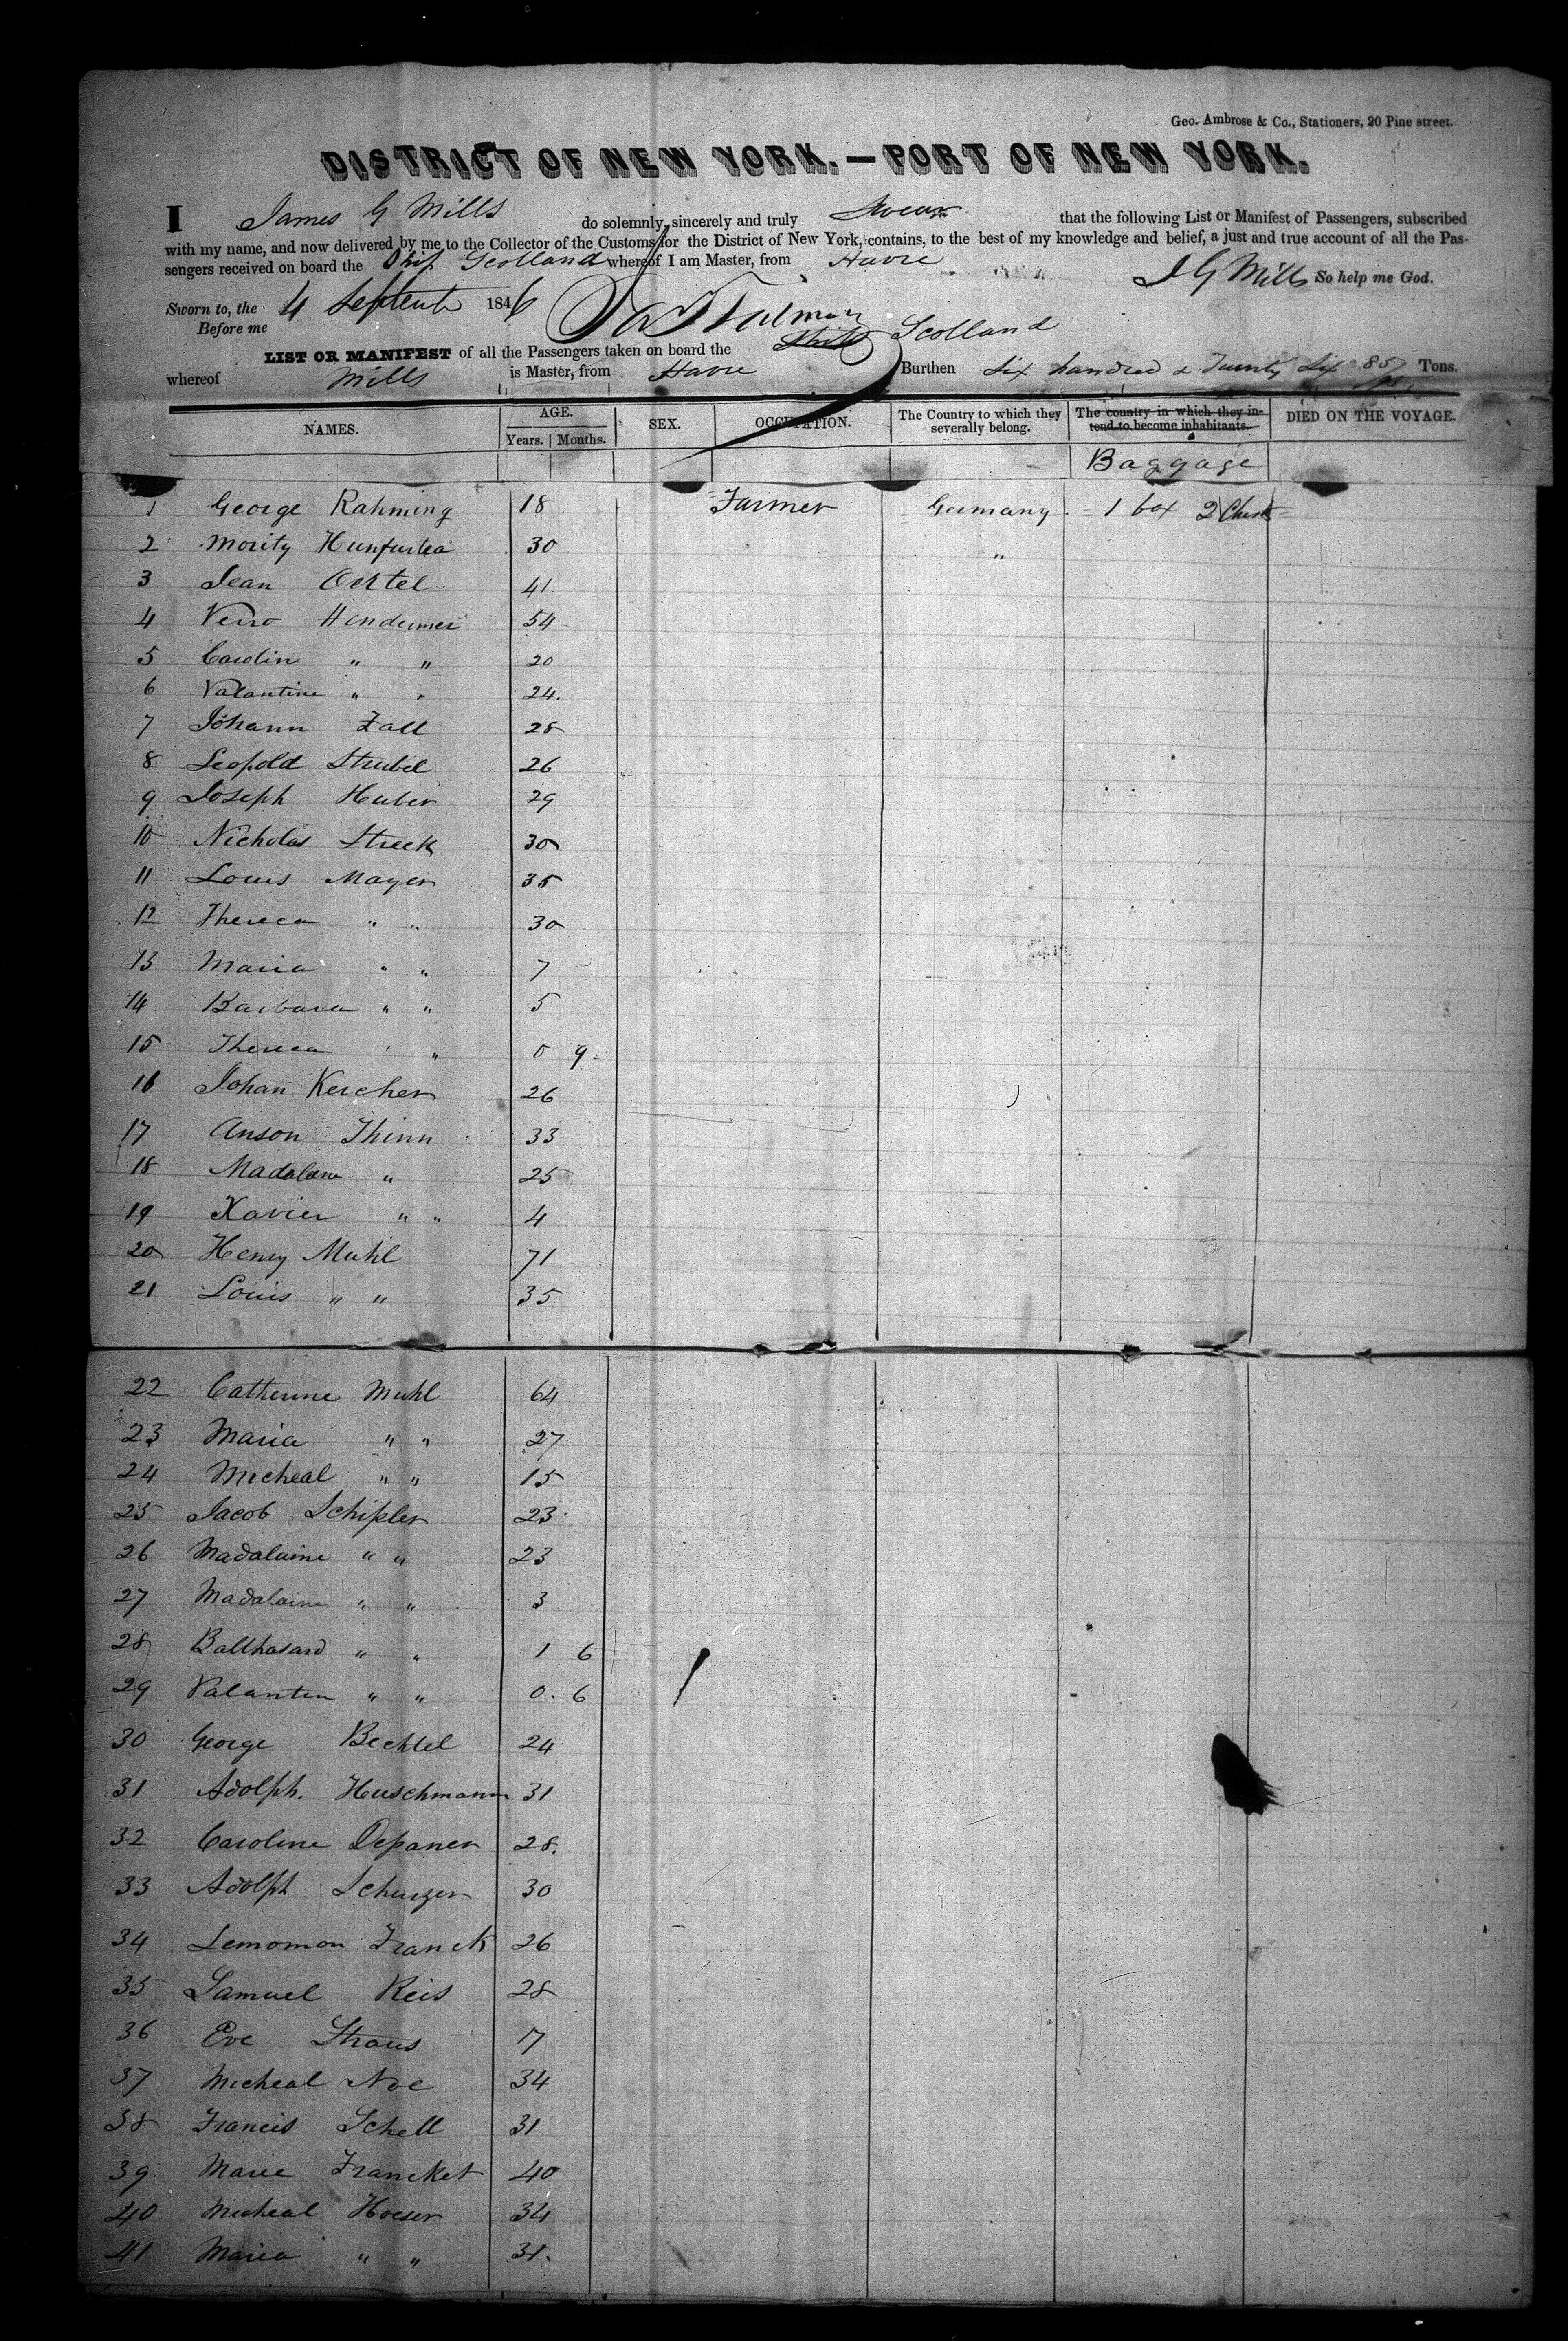 Geo. Ambrose & Co., Stationers, 20 Pine street.
DISTRICT OF NEW YORK.—PORT OF NEW YORK.
I James G Mills do solemnly, sincerely and truly Swear that the following List or Manifest of Passengers, subscribed
with my name, and now delivered by me to the Collector of the Customs for the District of New York, contains, to the best of my knowledge and belief, a just and true account of all the Pas-
sengers received on board the Ship Scotland whereof I am Master, from Havre
J G Mills So help me God.
Sworn to, the 4 Septemb 1846
Before me
LIST OR MANIFEST of all the Passengers taken on board the Ship Scotland
whereof Mills is Master, from Havre Burthen Six hundred & Twenty Six 85/95 Tons.
NAMES. AGE. Years. Months. SEX. OCCUPATION. The Country to which they severally belong. The country in which they in-tend to become inhabitants. DIED ON THE VOYAGE.
Baggage
1 George Rahming 18 Farmer Germany 1 box 2 Chests
2 Mority 30 "
3 Jean Oertel 41
4 54
5 Carolin " " 20
6 Valantine " " 24.
7 Johann Zall 28
8 Leopold Strubel 26
9 Joseph Huber 29
10 Nicholas Streck 30
11 Louis Mayer 35
12 Thereca " " 30
13 Maria " " 7
14 Barbara " " 5
15 Thereca " " 0 9
16 Johan Kercher 26
17 Anson Thinn 33
18 Madalane " 25
19 Xavier " " 4
20 Henry Muhl 71
21 Louis " " 35
22 Catherine Muhl 64
23 Maria " " 27
24 Micheal " " 15
25 Jacob Schipler 23
26 Madalaine " " 23
27 Madalaine " " 3
28 Balthasard " " 1 6
29 Valantin " " 0. 6
30 George Bechtel 24
31 Adolph. Huschmann 31
32 Caroline Depaner 28.
33 Adolph Schuzer 30
34 Lemomon Franck 26
35 Samuel Reis 28
36 Eve Straus 17
37 Micheal Noe 34
38 Francis Schell 31
39. Marie Francket 40
40 Micheal Hoeser 34
41 Maria " " 31.